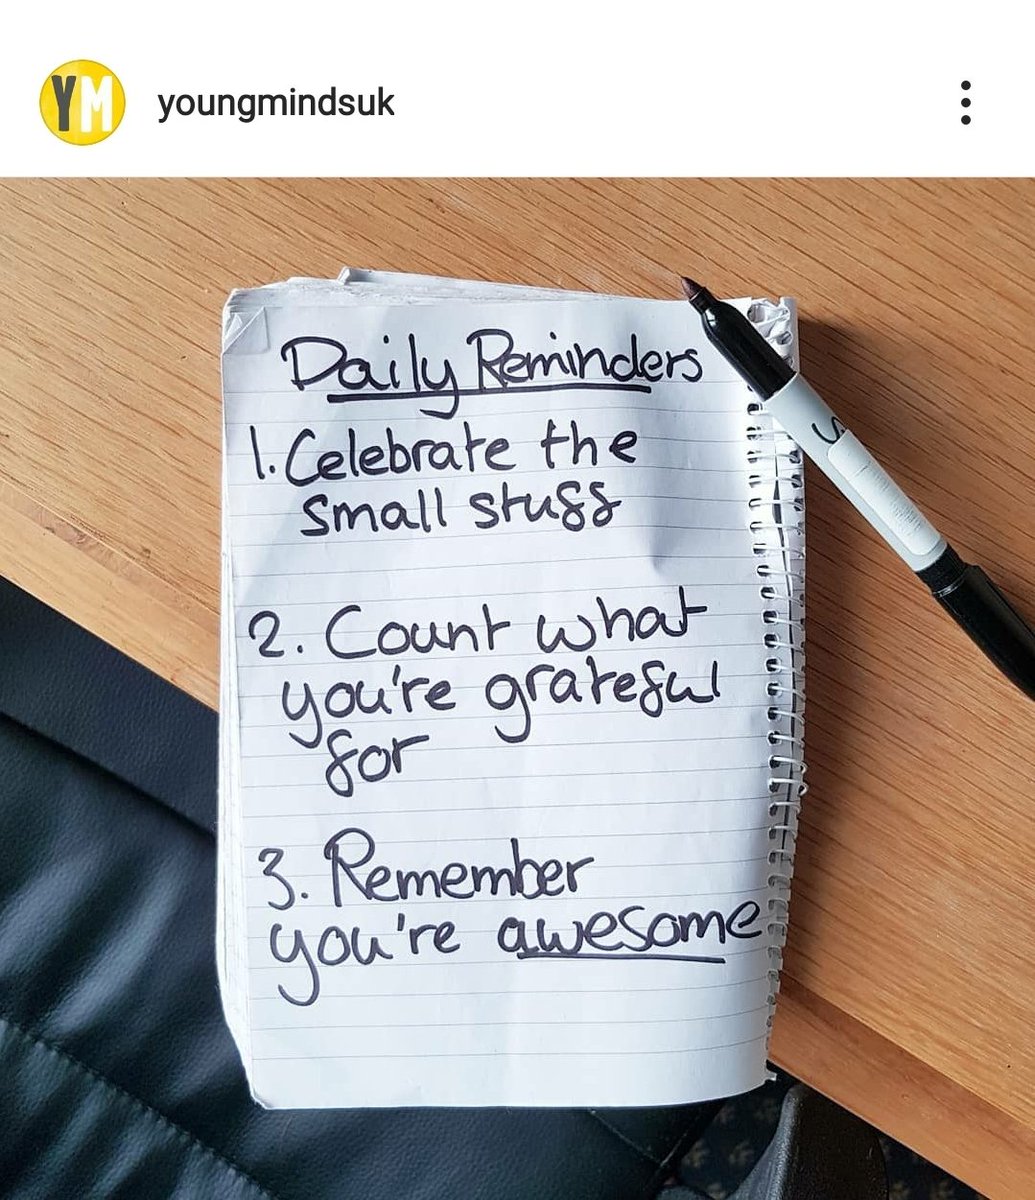 YM
youngmindsuk
Daily Reminders
1. Celebrate the
small stuff
2. Count what
you're grateful
for
3. Remember
you're awesome